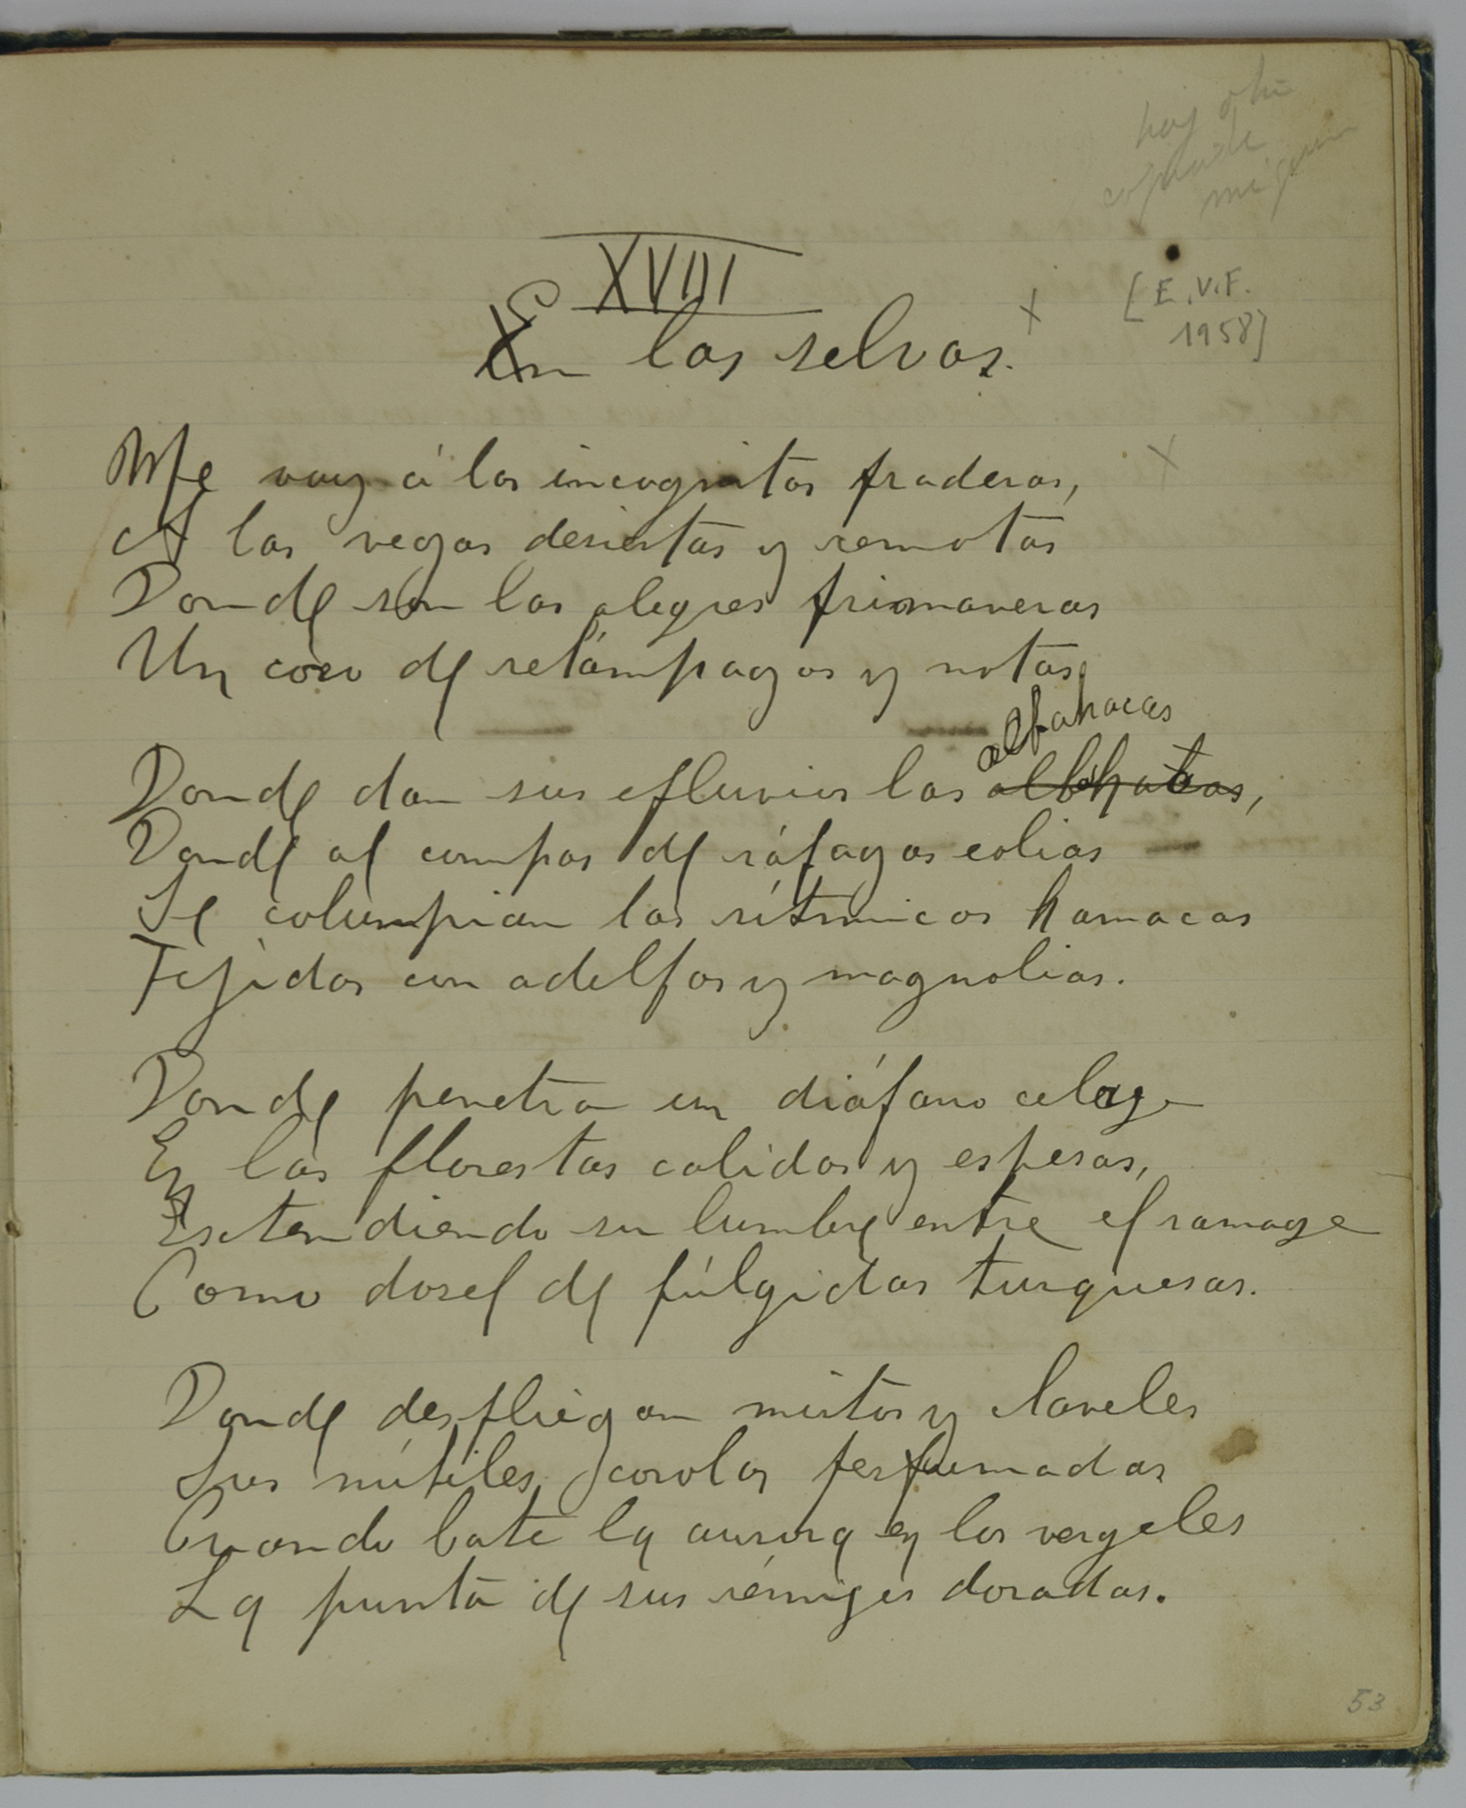 hay otra
copia de
XVIII
[E.V.F.
1958]
En las selvas.
Me voy á las incognitas praderas,
A las vegas desiertas y remotas
Donde son las alegres primaveras
Un coro de relámpagos y notas;
albahacas
Donde dan sus efluvios las albhacas,
Donde al compas de ráfagas eolias
Se columpian las rítmicas hamacas
Tejidas con adelfas y magnolias.
Donde penetra un diáfano celage
En las florestas calidas y espesas,
Extendiendo su lumbre entre el ramage
Como dosel de fúlgidas turquesas.
Donde despliegan mirtos y claveles
Sus núbiles corolas perfumadas
Cuando bate la aurora en los vergeles
La punta de sus rémiges doradas.
53